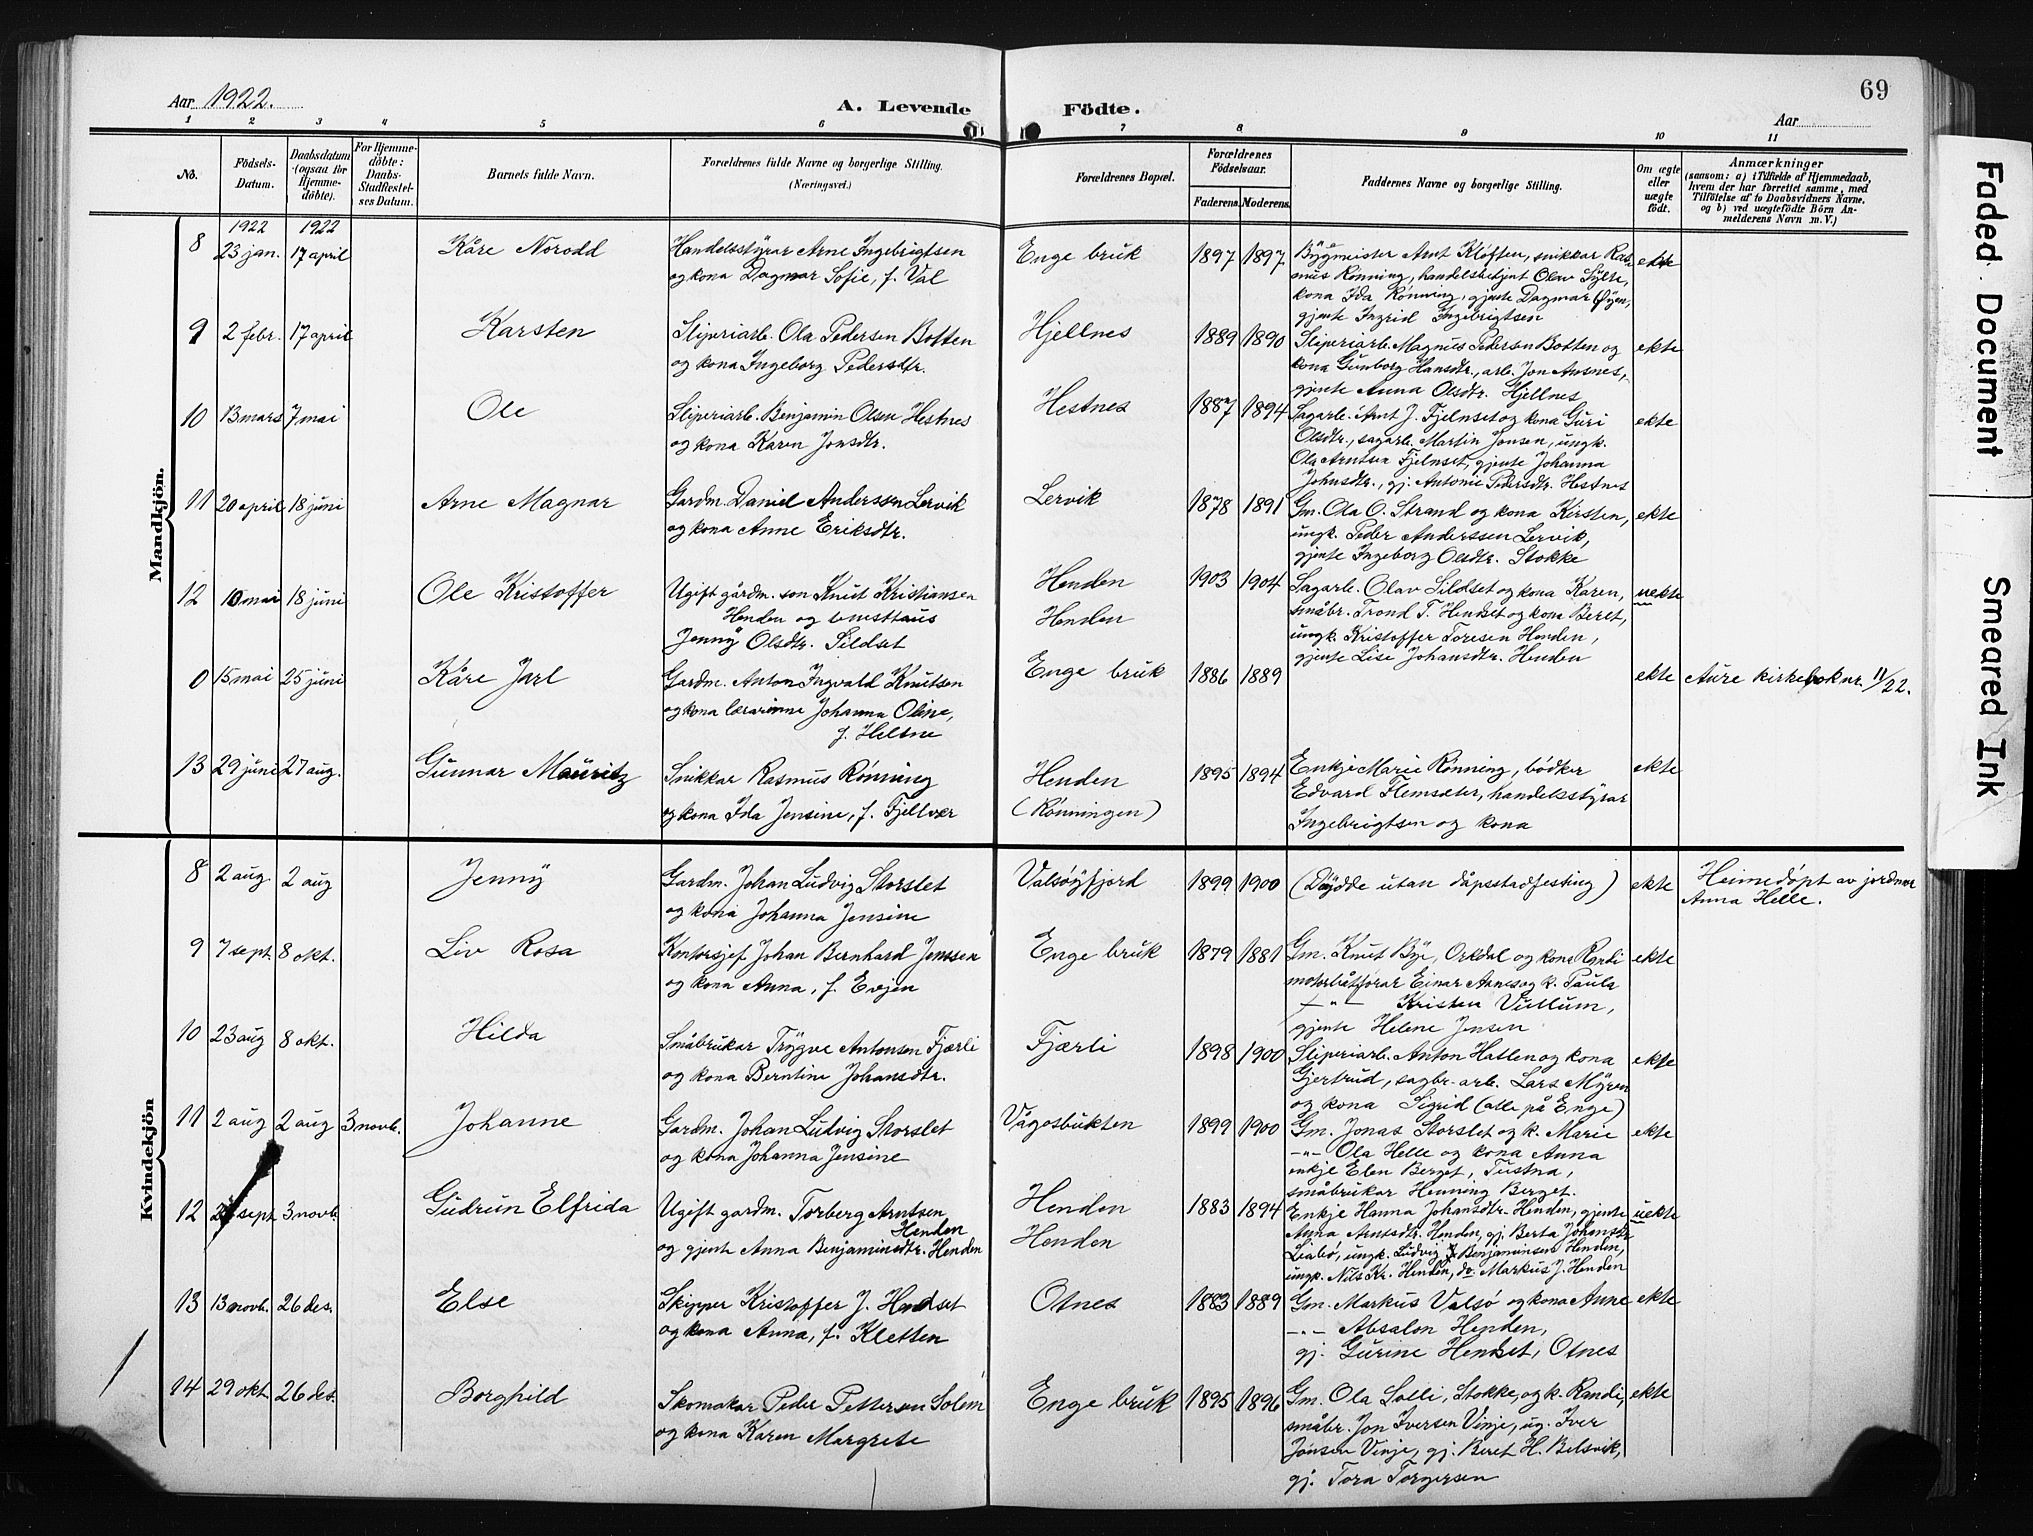 Aar 1922.
A. Levende Födte.
69
Aar
1 2 3 4 5 6 7 8 9 10 11
No.
Födsels-Datum.
Daabsdatum (ogsaa for Hjemmedöbte).
For Hjemmedöbte: Daabs-Stadfæstelses Datum.
Barnets fulde Navn.
Forældrenes fulde Navne og borgerlige Stilling. (Næringsvei.)
Forældrenes Bopæl.
Forældrenes Födselsaar.
Faderens. Moderens.
Faddernes Navne og borgerlig Stilling.
Om ægte eller uægte födt.
Anmærkninger
(saasom: a) i Tilfælde af Hjemmedaab, hvem der har forrettet samme, med Tilföielse af to Daabsvidners Navne, og b) ved uægtefödte Börn Anmelderens Navn m. V.)
Mandkjön.
1922 1922
8 23 jan. 17 april Kåre Norodd Handelsstyrar Arne Ingebrigtsen Enge bruk 1897 1897 Byggmeister Arnt Kløften, snikkar Ras- ekte
og kona Dagmar Sofie, f. Val mus Rønning, handelsbetjent Olav Sylte,
kona Ida Rønning, gjente Dagmar Øyen,
gjente Ingrid Ingebrigtsen
9 2 febr. 17 april Karsten Sliperiarb. Ola Pedersen Botten Hjellnes 1889 1890 Sliperiarb. Magnus Pedersen Botten og ekte
og kona Ingeborg Pedersdtr. kona Gunborg Hansdtr., arb. Jon Aasnes,
gjente Anna Olsdtr. Hjellnes
10 13 mars 7 mai Ole Sliperiarb. Benjamin Olsen Hestnes Hestnes 1887 1894 Sagarb. Arnt J. Fjelnset og kona Guri ekte
og kona Karen Jonsdtr. Olsdtr., sagarb. Martin Jonsen, ungk.
Ola Arntsen Fjelnset, gjente Johanna
Johnsdtr., gj. Antonie Pedersdtr. Hestnes
11 20 april 18 juni Arne Magnar Gardm. Daniel Anderssen Lervik Lervik 1878 1891 Gm. Ola O. Strand og kona Kirsten, ekte
og kona Anne Eriksdtr. ungk. Peder Anderssen Lervik,
gjente Ingeborg Olsdtr. Stokke
12 10 mai 18 juni Ole Kristoffer Ugift gårdm. son Knut Kristiansen Henden 1903 1904 Sagarb. Olav Sildset og kona Karen, uekte
Henden og tensttaus Henden småbr. Trond T. Hendset og kona Beret,
Jenny Olsdtr. Sildset ungk. Kristoffer Toresen Henden,
gjente Lise Johansdtr. Henden
0 15 mai 25 juni Kåre Jarl Gardm. Anton Ingvald Knutsen Enge bruk 1886 1889 ekte Aure kirkebok nr. 11/22.
og kona lærarinne Johanna Oline,
f. Heltne
13 29 juni 27 aug. Gunnar Mauritz Snikkar Rasmus Rønning Henden 1895 1894 Enkje Marie Rønning, bødker ekte
og kona Ida Jensine, f. Fjellvær (Rønningen) Edvard Flemsæter, handelsstyrar
Ingebrigtsen og kona
Kvindekjön
8 2 aug. 2 aug Jenny Gardm. Johan Ludvig Storslet Valsøyfjord 1899 1900 (Døydde utan dåpsstadfesting) ekte Heimedøpt av jordmor
og kona Johanna Jensine Anna Helle.
9 7 sept. 8 okt. Liv Rosa Kontorsjef Johan Bernhard Jenssen Enge bruk 1879 1881 Gm. Knut Bye, Orkdal og kona Randi ekte
og kona Anna, f. Evjen motorbåtførar Einar Arnes og k. Paula
—"— Kristen Vullum,
gjente Helene Jensen
10 23 aug 8 okt. Hilda Småbrukar Trygve Antonsen Fjærli Fjærli 1898 1900 Sliperiarb. Anton Hatlen og kona ekte
og kona Berntine Johansdtr. Gjertrud, sagbr. arb. Lars Myren
og kona Sigrid (alle på Enge)
11 2 aug 2 aug 3 novb. Johanne Gardm. Johan Ludvig Storslet Vågosbukten 1899 1900 Gm. Jonas Storslet og k. Marie ekte
og kona Johanna Jensine —"— Ola Helle og kona Anna
enkje Elen Berget, Tustna,
småbrukar Henning Berget.
12 sept 3 novb. Gudrun Elfrida Ugift gardm. Torberg Arntsen Henden 1883 1894 Enkje Hanna Johansdtr. Henden, gjente uekte
Henden Henden Anna Arntsdtr. Henden, gj. Berta Johansdtr.
og gjente Anna Benjaminsdtr. Henden Liabø, ungk. Ludvig Benjaminsen Henden,
ungk. Nils Kr. Henden, do. Markus J. Henden
13 13 novb. 26 des. Else Skipper Kristoffer J. Hendset Otnes 1883 1889 Gm. Markus Valsø og kona Anne ekte
og kona Anna, f. Kletten —"— Absalon Henden,
gj. Gurine Hendset, Otnes
14 29 okt. 26 des. Borghild Skomakar Peder Pettersen Solem Enge bruk 1895 1896 Gm. Ola Solli, Stokke, og k. Randi, ekte
og kona Karen Margrete småbr. Jon Iversen Vinje, ug. Iver
Jonsen Vinje, gj. Beret H. Belsvik,
gj. Tora Torgersen
Faded Document Smeared Ink